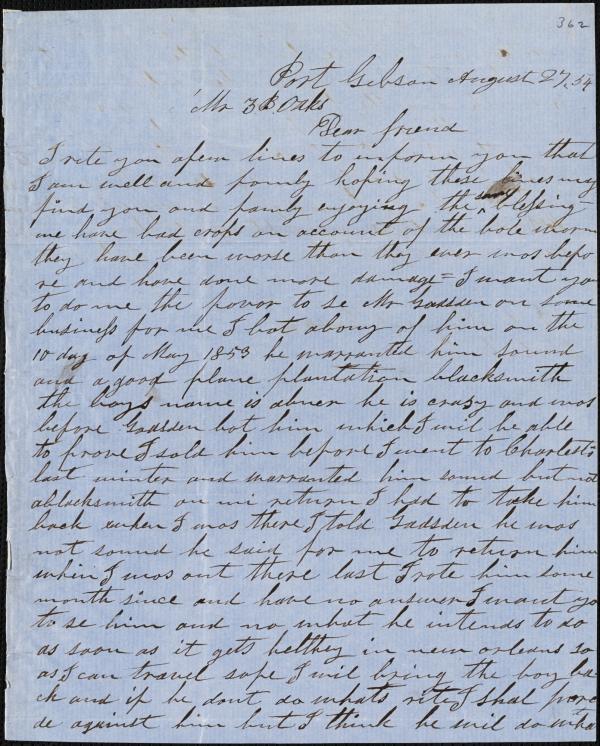 362
Port Gibson August 27, 54
Mr Z B. Oaks
Dear friend
I rite you afew lines to inform you that
I am well and famly hoping these lines may
find you and famly enjoying the same blessing -
we have bad crops on account of the bole worm
they have been worse than they ever was befo
re and have done more damage = I want you
to do me the favor to se Mr Gadsden on some
business for me I bot aboy of him on the
10 day of May 1853 he warranted him sound
and a good plane plantation blacksmith
the boys name is abner he is crasy and was
before Gadsden bot him which I wil be able
to prove I sold him before I went to Charlest
last winter and warranted him sound but not
ablacksmith on mi return I had to take him
back when I was there I told Gadsden he was
not sound he said for me to return him
when I was out there last I rote him some
month since and have no answer I want yo
to se him and no what he intends to do
as soon as it gets helthey in new orleans so
as I can travel safe I wil bring the boy ba
ck and if he dont do whats rite I shal
de against him but I think he wil do wha